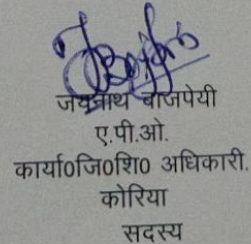 जयनाथ बाजपेयी
ए.पी.ओ.
कार्या0जि0शि0 अधिकारी.
कोरिया
सदस्य